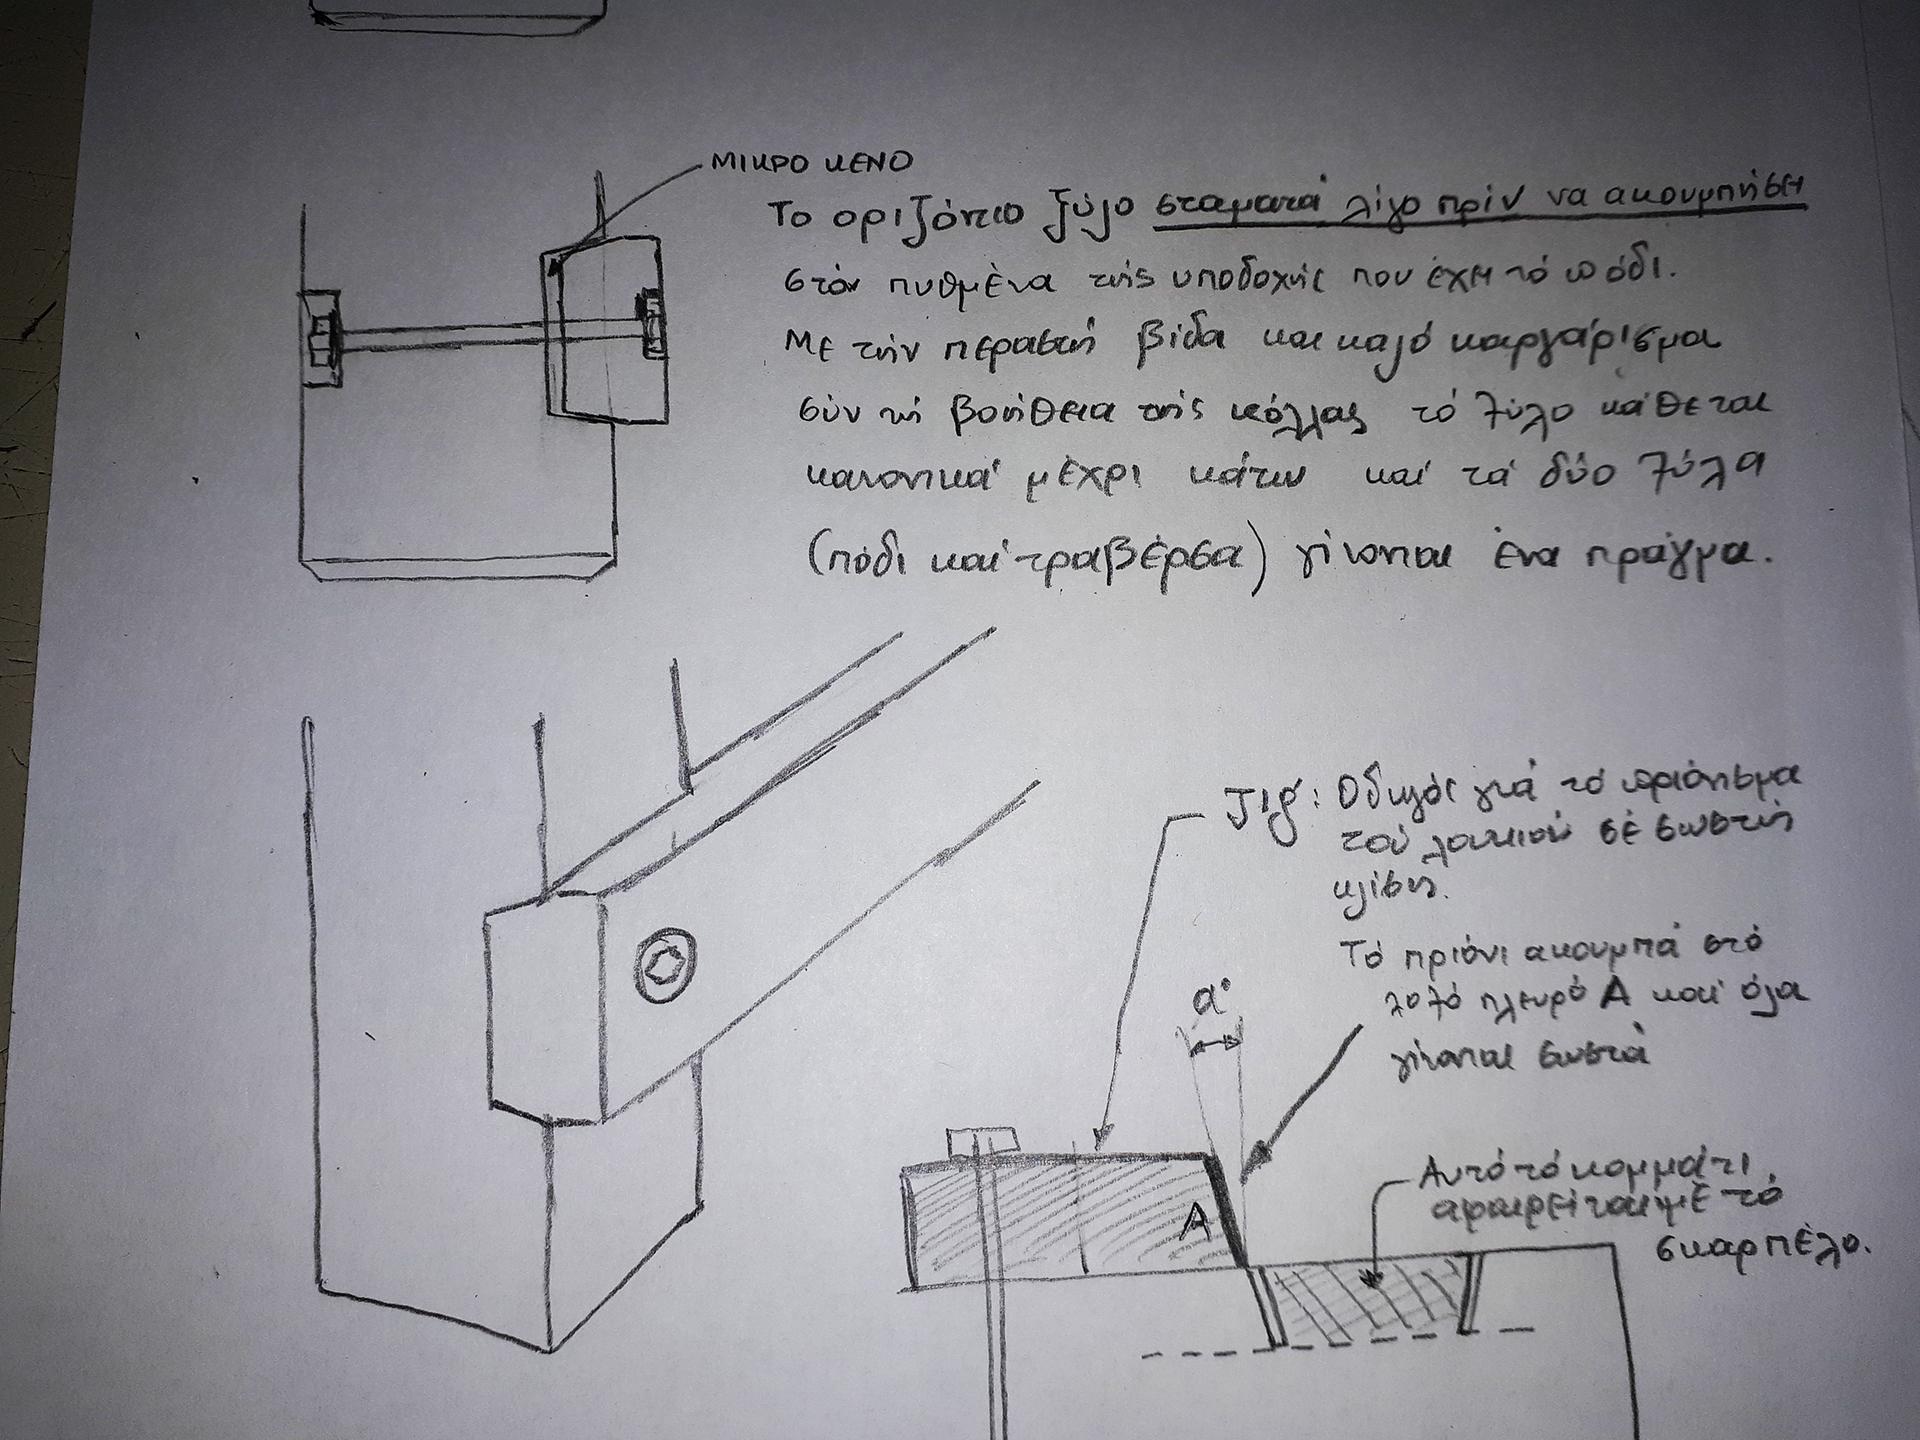 ΜΙΚΡΟ ΚΕΝΟ
Το οριζόντιο ξύλο σταματά λίγο πρίν να ακουμπήσει
στόν πυθμένα τής υποδοχής που έχει τό πόδι.
Με τήν περαστή βίδα και καλό καργάρισμα
σύν τή βοήθεια τής κόλλας τό ξύλο κάθεται
κανονικά μέχρι κάτω καί τά δύο ξύλα
(πόδι καί τραβέρσα) γίνονται ένα πράγμα.
Jig: Οδηγός γιά τό πριόνισμα
τού λουκιού σέ σωστή
κλίση.
Τό πριόνι ακουμπά στό
λοξό πλευρό Α καί όλα
γίνονται σωστά
α°
Α
Αυτό τό κομμάτι
αφαιρείται μέ τό
σκαρπέλο.